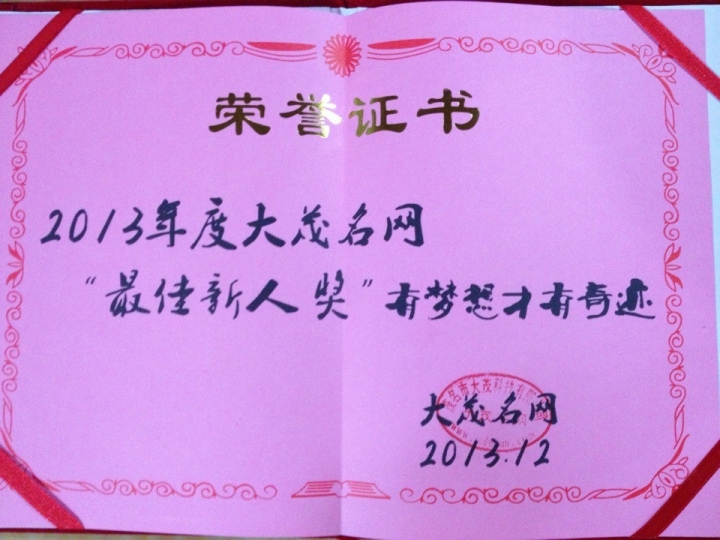 荣誉证书
2013年度大茂名网
“最佳新人奖”有梦想才有奇迹
茂名市大茂科技有限
大茂名网
2013.12